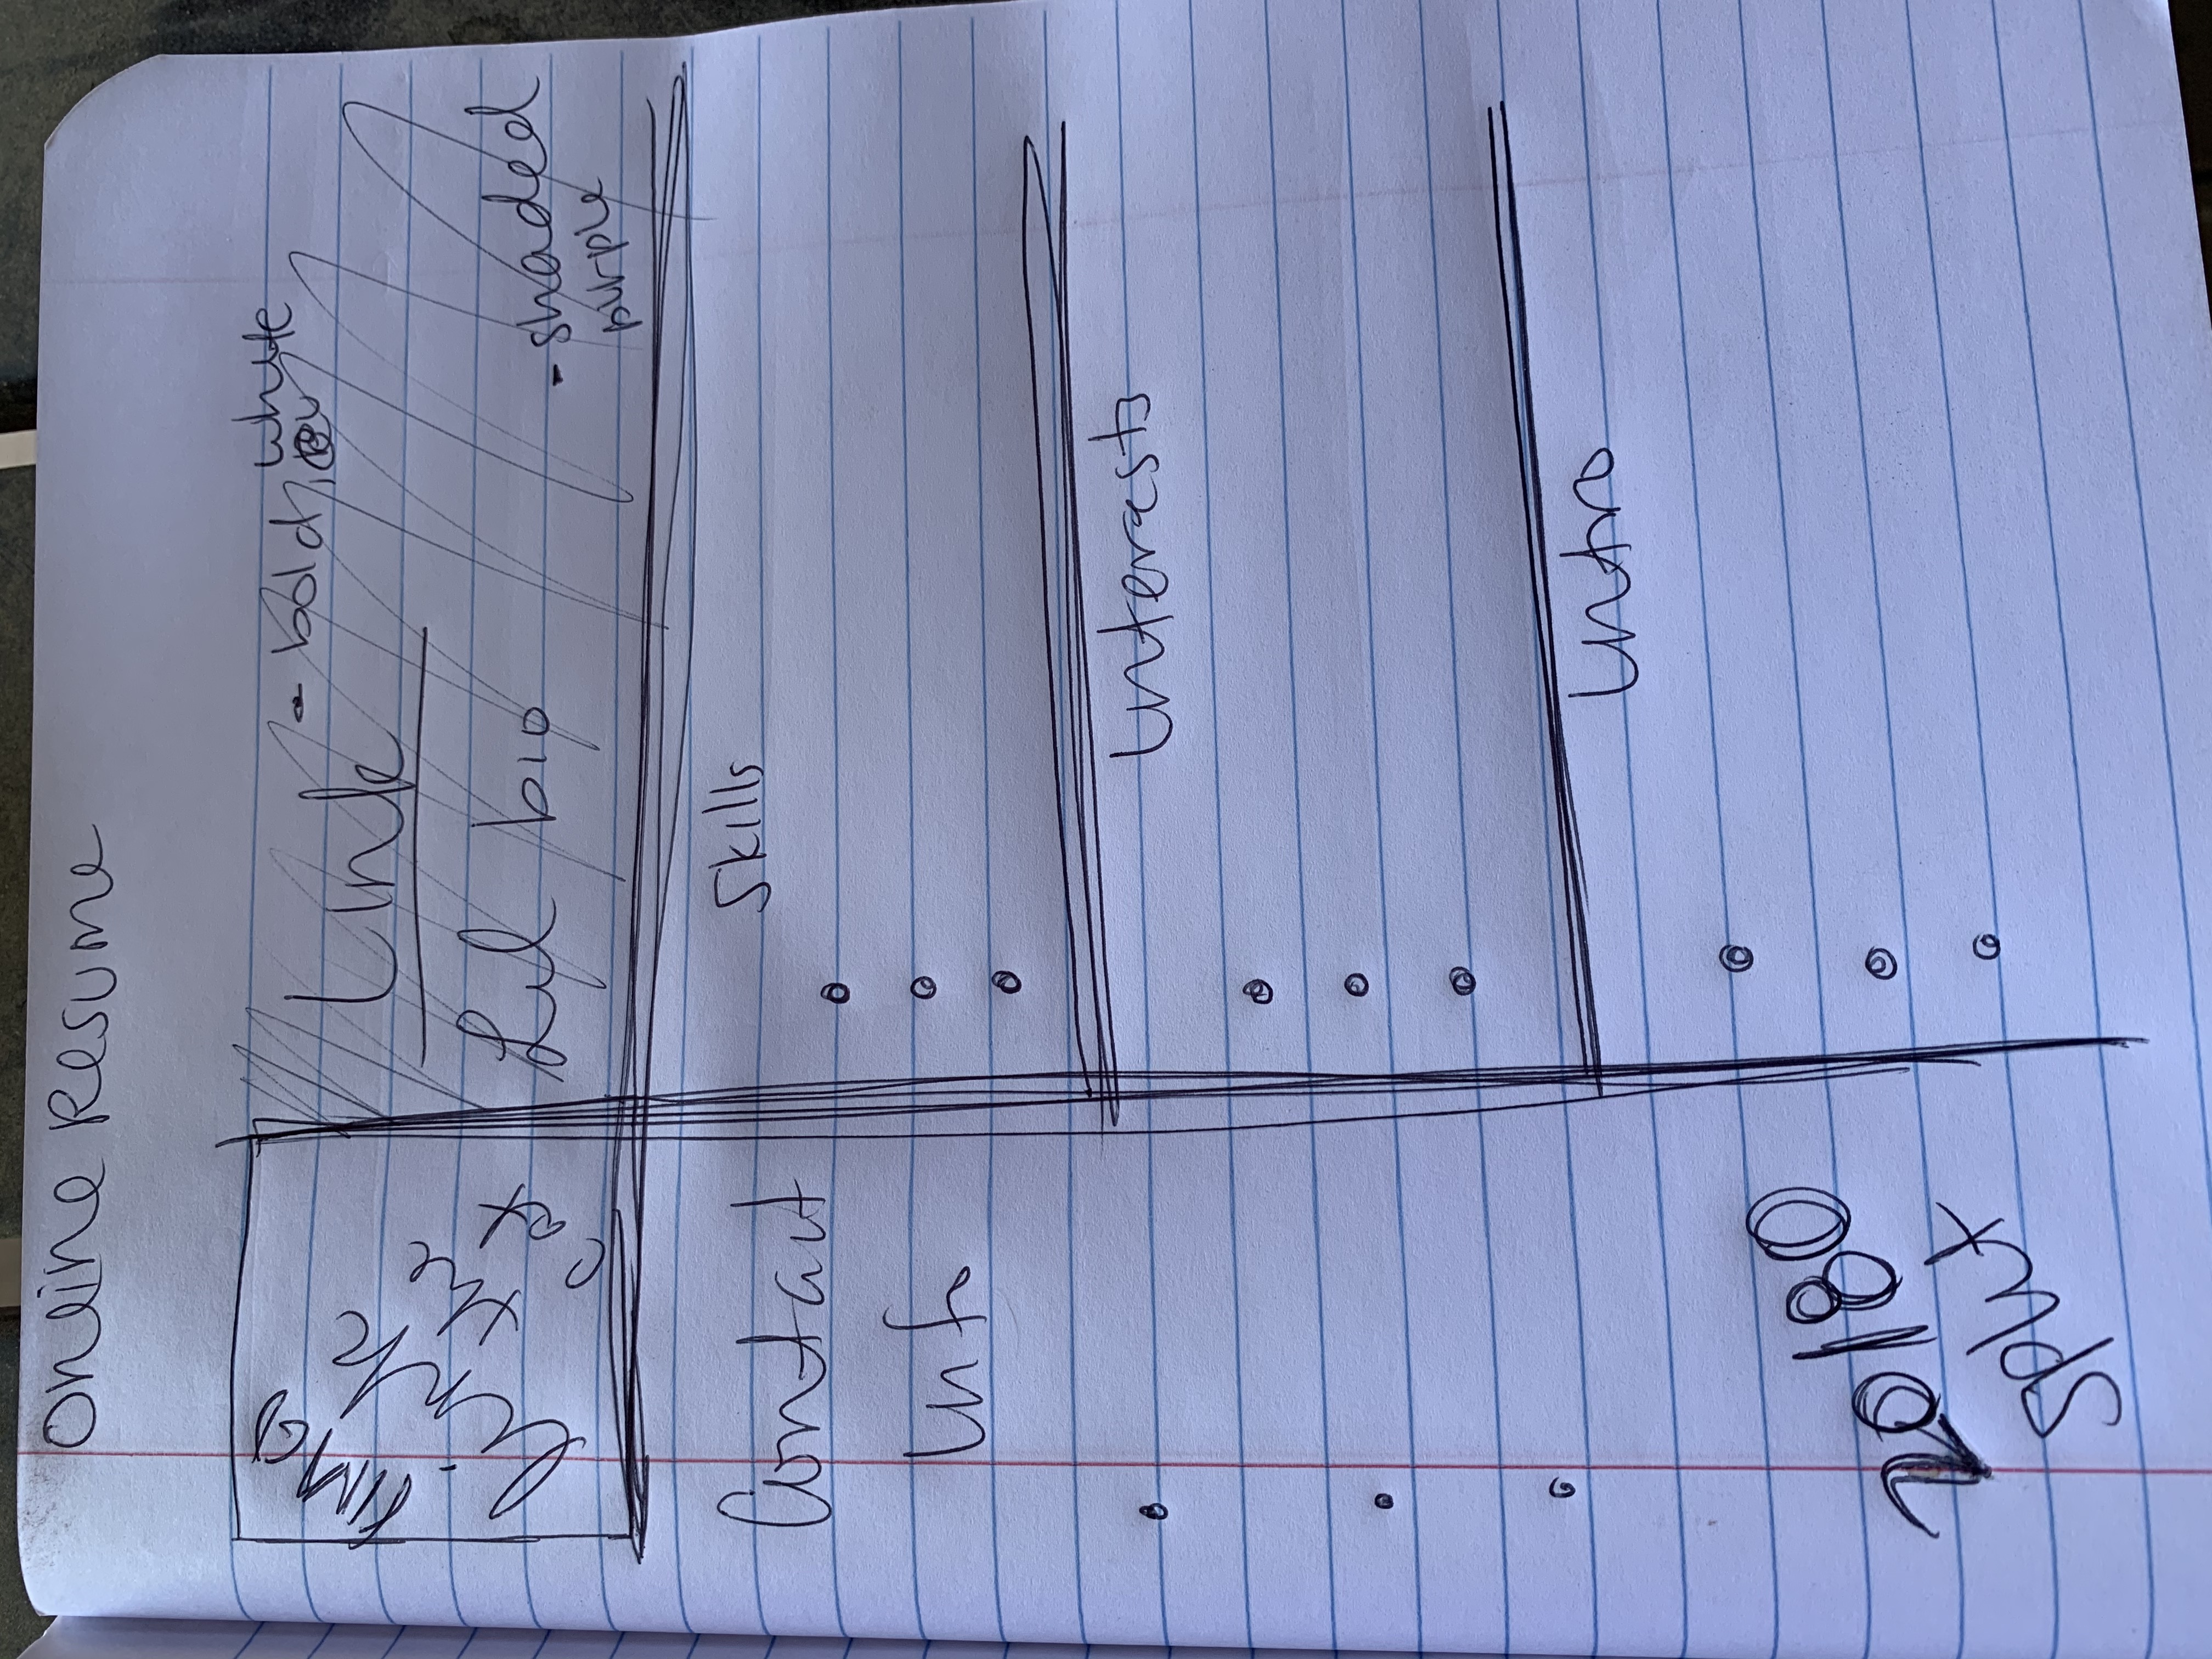 Online Resume
IMG
link
the
cat
Link
- bold, white
Lil bio
- shaded
purple
Contact
Info
Skills
Interests
Intro
20/80
split